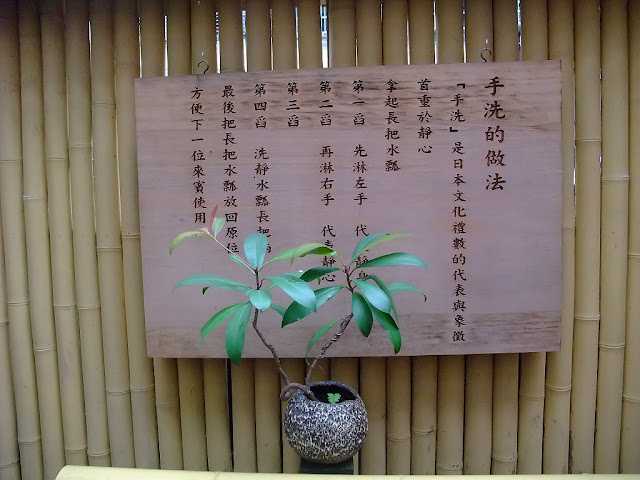 手洗的做法
「手洗」是日本文化禮數的代表與象徵
首重於靜心
拿起長把水瓢
第一舀 先淋左手 代表靜身
第二舀 再淋右手 代表靜心
第三舀
第四舀 洗靜水瓢長把
最後把長把水瓢放回原位
方便下一位來賓使用